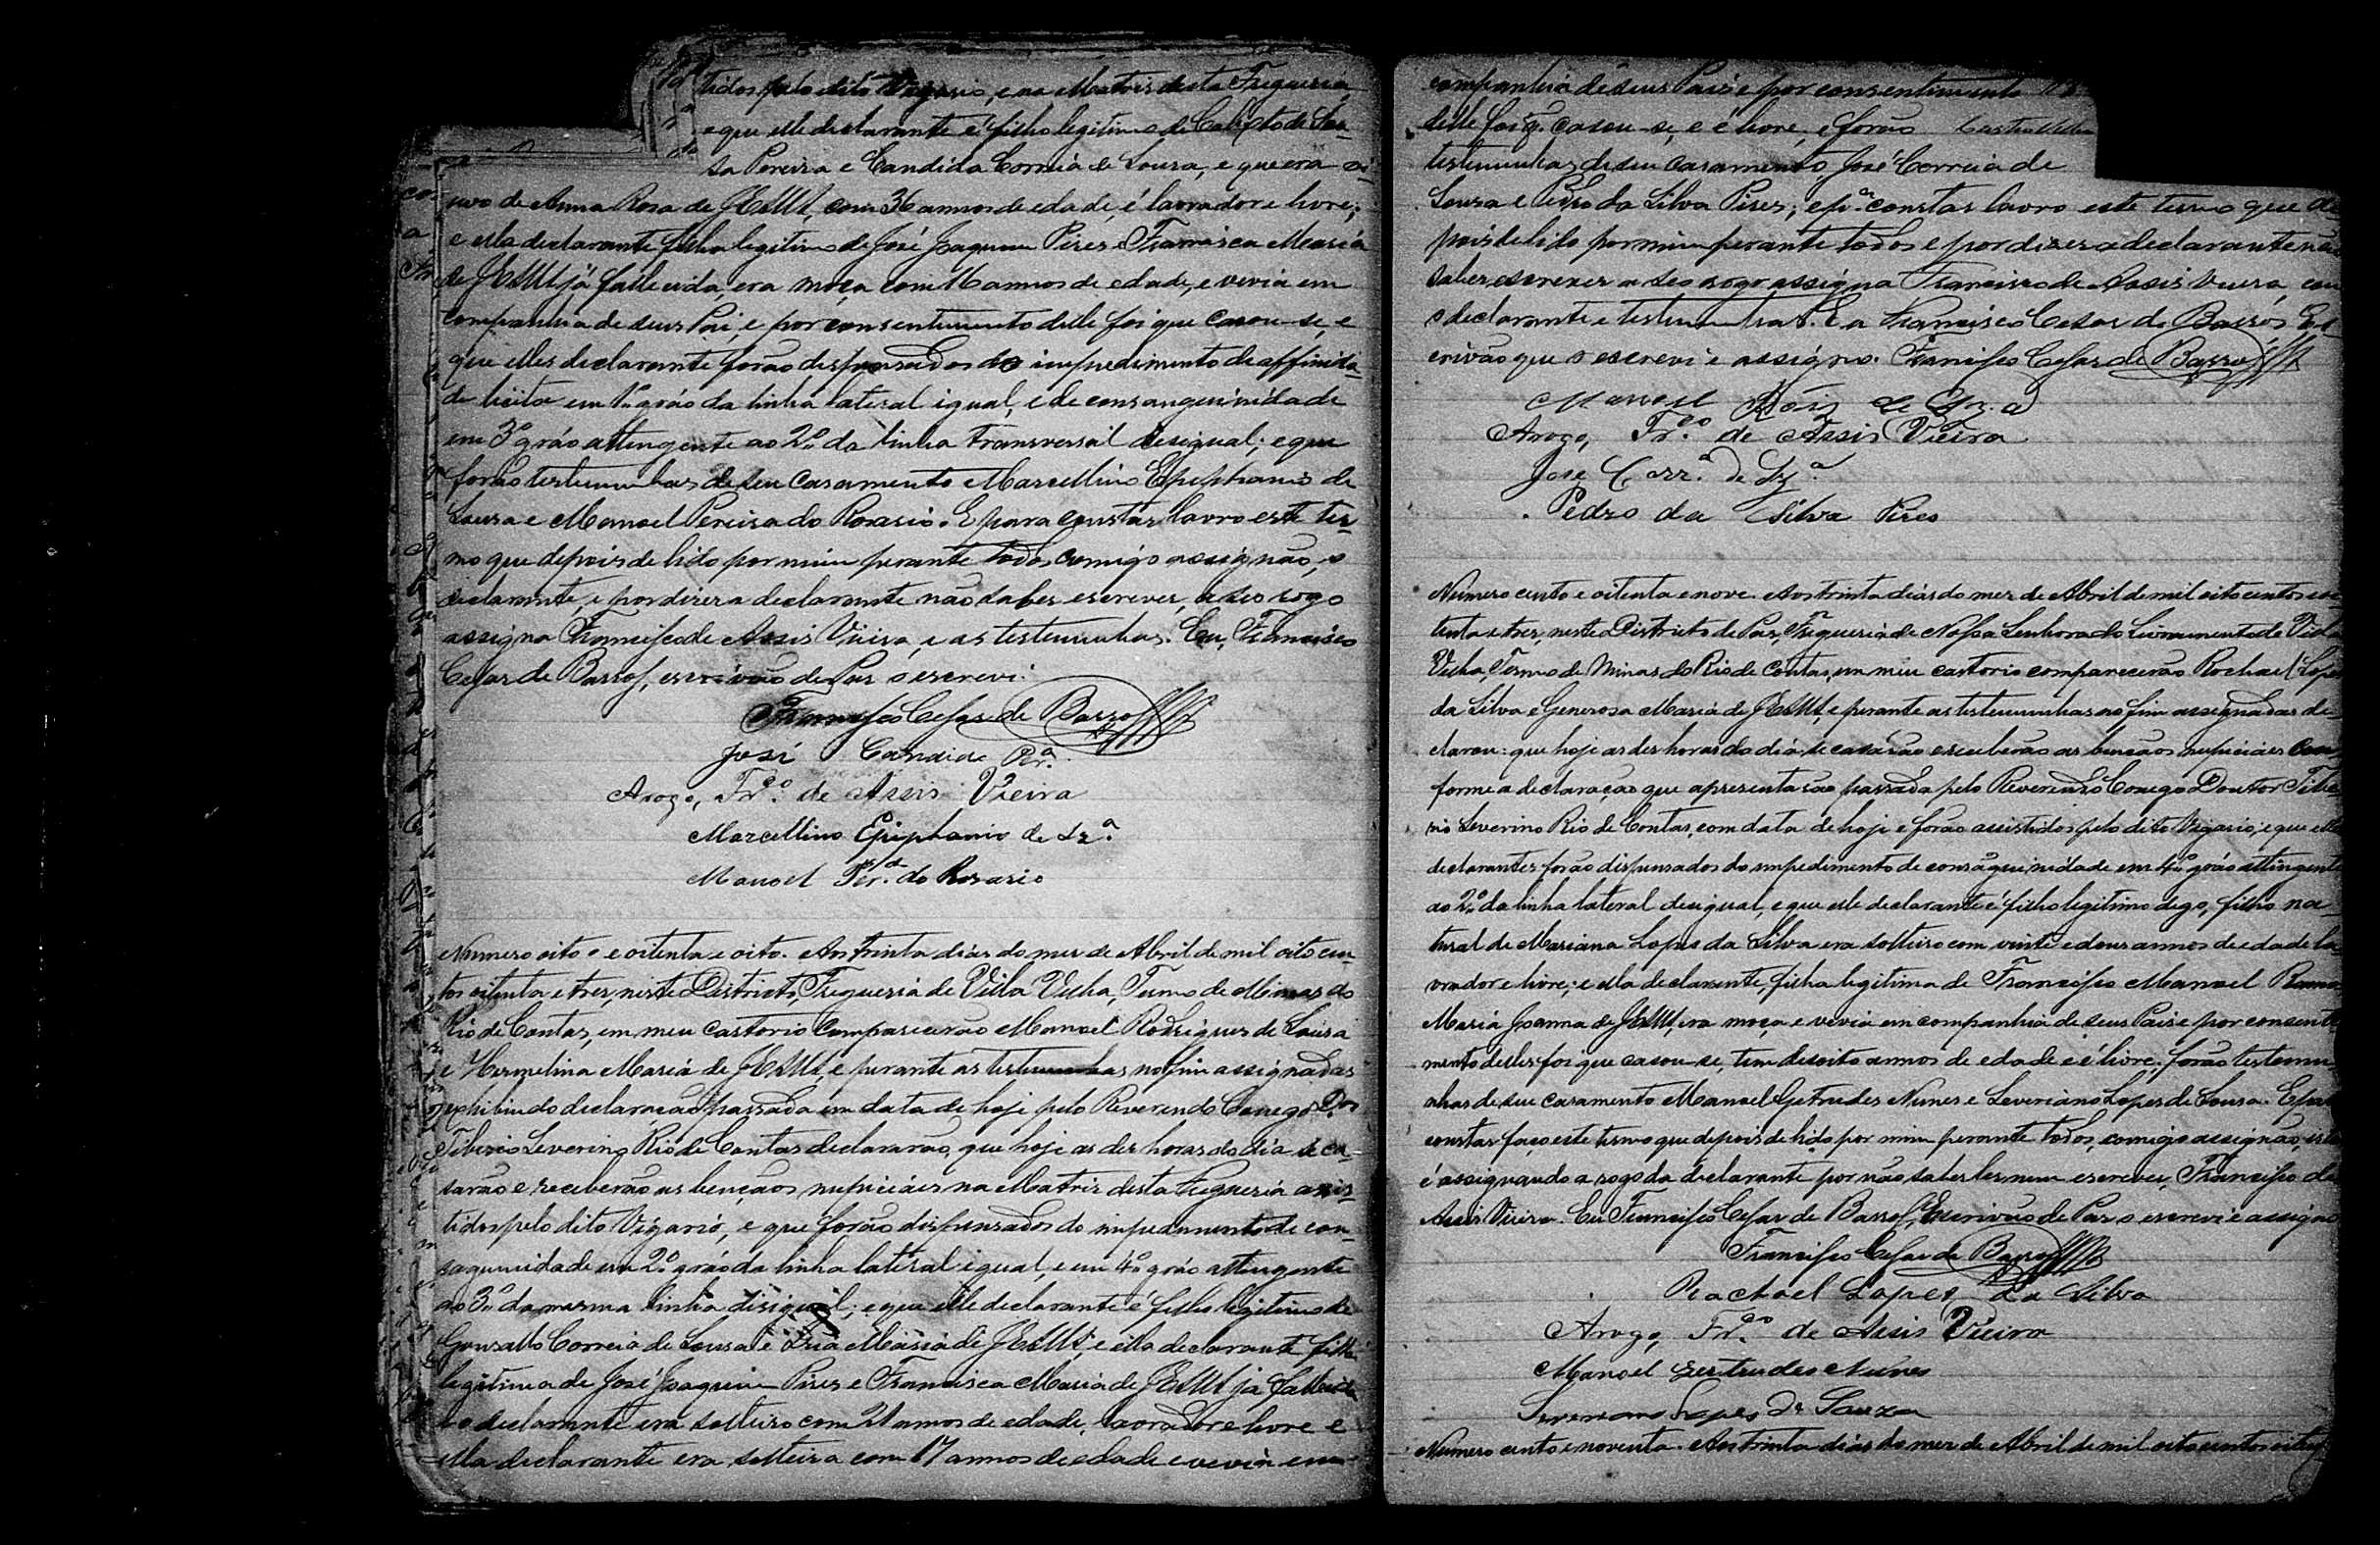 tidos pelo dito Vigario, e na Matris desta Freguesia,
e que elle declarante é filho legitimo de Calixto de Sou-
sa Pereira e Candida Correia de Sousa, e que era vi-
uvo de Anna Rosa de JESUS, com 36 annos de edade, é lavrador e livre;
e ella declarante filha legitima de José Joaquim Pires e Francisca Maria
de JESUS já fallecida, era moça com 16 annos de edade, e vevia em
companhia de seus Pai, e por consentimento delle foi que casou-se, e
que elles declarante forão dispensados do impedimento de affinida-
de licita em 1º gráo da linha lateral igual, e de consanguinidade
em 3º gráo attingente ao 2º da linha transversal desigual; e que
forão testemunhas de seu casamento Marcellino Epiphanio de
Sousa e Manoel Pereira do Rosario. E para constar lavro este ter-
mo que depois de lido por mim perante todos comigo assignão, o
declarante, e por diser a declarante não saber escrever, a seo rogo
assigna Francisco de Assis Vieira, e as testemunhas. Eu, Francisco
Cesar de Barros, escrivão de Pas o escrevi.
Francisco Cesar de Barros
José Candido Per.ª
Arogo, Fr.co de Assis Vieira
Marcellino Epiphanio de Sz.ª
Manoel Per.ª do Rosario
Numero oito e oitenta e oito. Aos trinta dias do mes de Abril de mil oito cen-
tos oitenta e tres, neste Districto, Freguesia de Villa Velha, Termo de Minas do
Rio de Contas, em meu cartorio comparecerão Manoel Rodrigues de Sousa
e Hermelina Maria de JESUS, e perante as testemunhas no fim assignadas
exhibindo declaração passada em data de hoje pelo Reverendo Conego Dor
Tiberio Severino Rio de Contas declararão, que hoje as des horas do dia se ca-
sarão e receberão as bençãos nupiciáes na Matris desta Freguesia assis-
tidos pelo dito Vigario, e que forão dispensados do impedimento de con-
saguinidade em 2º gráo da linha lateral igual, e em 4º gráo attingente
ao 3º da mesma linha disigual; e que elle declarante é filho legitimo de
Gonsallo Correia de Sousa e Maria de JESUS, e ella declarante filha
legitima de José Joaquim Pires e Francisca Maria de JESUS já fallecida
o declarante era solteiro com 21 annos de edade, lavrador e livre e
ella declarante era solteira com 17 annos de edade e vevia em
companhia de seus Pais e por consentimento
delle foi q. casou-se, e é livre, e forão
testemunhas de seu casamento, José Correia de
Sousa e Pedro da Silva Pires; e pª constar lavro este termo que de-
pois de lido por mim perante todos e por diser a declarante não
saber escrever a seo rogo assigna Francisco de Assis Vieira, com
o declarante e testemunhas. Eu Francisco Cesar de Barros Es-
crivão que o escrevi e assigno. Francisco Cesar de Barros
Manoel Roiz de Sz.a
Arogo, Fr.co de Assis Vieira
Jose Corr.ª de Sz.ª
Pedro da Silva Pires
Numero cento e oitenta e nove. Aos trinta dias do mes de Abril de mil oito centos oi-
tenta e tres, neste Districto de Pas, Freguesia de Nossa Senhora do Livramento de Villa
Velha, Termo de Minas do Rio de Contas, em meu cartorio comparecerão Rochael Lopes
da Silva e Generosa Maria de JESUS, e perante as testemunhas no fim assignadas de-
clarou: que hoje as des horas do dia se casarão e receberão as bençãos nupiciáes con
forme a declaração que apresentarão passada pelo Reverendo Conego Doutor Tibe-
rio Severino Rio de Contas, com data de hoje e forão assistidos pelo dito Vigario; e que elles
declarantes forão dispensados do impedimento de consaguinidade em 4º gráo attingente
ao 2º da linha lateral desigual, e que elle declarante é filho legitimo digo, filho na-
tural de Mariana Lopes da Silva era solteiro com vinte e dous annos de edade la-
vrador e livre; e ella declarante, filha legitima de Francisco Manoel
Maria Joanna de JESUS, era moça e vevia em companhia de seus Pais e por consenti-
mento delles foi que casou-se, tem desoito annos de edade e é livre; forão testemu-
nhas de seu casamento Manoel Getrudes Nunes e Severiano Lopes de Sousa. E para
constar faço este termo que depois de lido por mim perante todos, comigo assignão,
é assignando a rogo da declarante por não saber ler nem escrever, Francisco de
Assis Vieira. Eu Francisco Cesar de Barros, Escrivão de Pas o escrevi e assigno
Francisco Cesar de Barros
Rachael Lopes da Silva
Arogo, Fr.co de Assis Vieira
Manoel Gertrudes Nunes
Severiano Lopes de Souza
Numero cento e noventa. Aos trinta dias do mes de Abril de mil oito centos oiten-